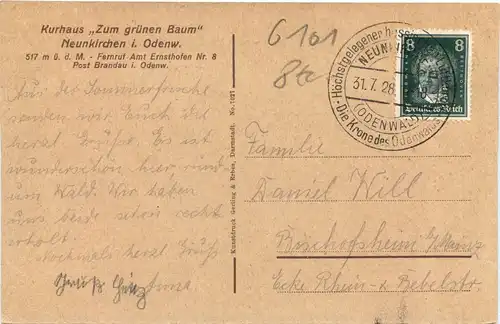 Kurhaus „Zum grünen Baum"
Neunkirchen i. Odenw.
517 m ü. d. M. - Fernruf-Amt Ernsthofen Nr. 8
Post Brandau i. Odenw.
6101
Höchstgelegener
NEUN
31.7.28
(ODENWALD)
Die Krone des Odenwaldes
8 8
Deutsches Reich
Aus der Sommerfrische
senden wir Euch die
herzl. Grüße. Es ist
wunderschön hier rund
um Wald. Wir haben
uns beide sehr recht
erholt.
Nochmals herzl. Gruß
Kunstdruck Gerling & Erben, Darmstadt. No.
Familie
Daniel Will
Bischofsheim b/Mainz
Ecke Rhein- u. Bebelstr.